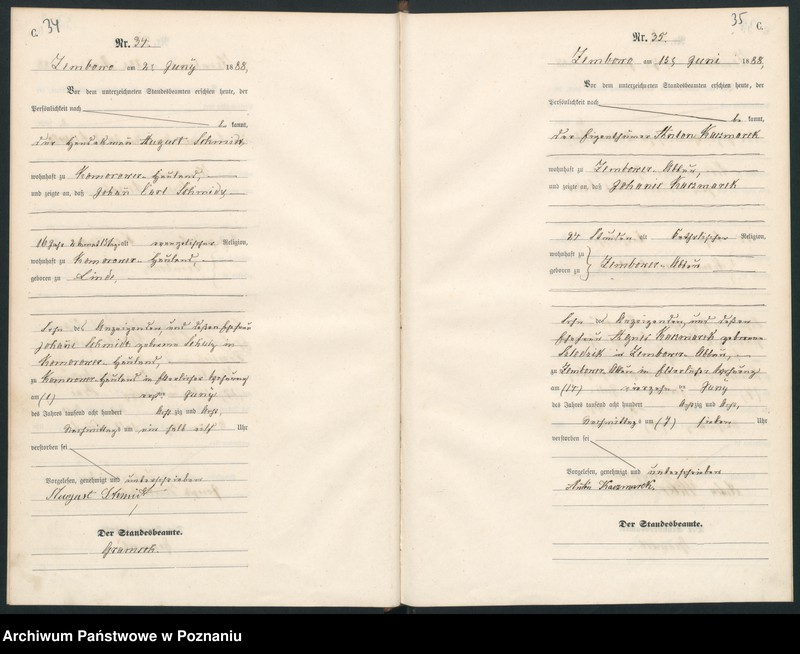 C. 34
Nr. 34.
Zembowo am 2ten Juny 1888,
Vor dem unterzeichneten Standesbeamten erschien heute, der
Persönlichkeit nach
be kannt,
August Schmidt
wohnhaft zu Komorowo-Hauland,
und zeigte an, daß Johañ Carl Schmidt
16 Jahr alt evangelischer Religion,
wohnhaft zu Komorowo-Hauland,
geboren zu Linde,
Sohn des Anzeigenden, und deßen Ehefrau
Schmidt geborene Schulz in
Komorowo-Hauland,
zu Komorowo-Hauland in elterlicher Wohnung
am (1) ersten Juny
des Jahres tausend acht hundert Achtzig und Acht,
Nachmittags um ein halb Uhr
verstorben sei
Vorgelesen, genehmigt und unterschrieben
August Schmidt
Der Standesbeamte.
35 C.
Nr. 35.
Zembowo am 15ten Juni 1888,
Vor dem unterzeichneten Standesbeamten erschien heute, der
Persönlichkeit nach
be kannt,
der Eigenthümer Anton Kaczmarek
wohnhaft zu Zembowo-Abbau,
und zeigte an, daß Kaczmarek
Stunden alt Katholischer Religion,
wohnhaft zu
geboren zu Zembowo-Abbau
Sohn des Anzeigenden, und deßen
Ehefrau Agnes Kaczmarek geborene
in Zembowo-Abbau,
zu Zembowo-Abbau in elterlicher Wohnung
am (14) vierzehn ten Juny
des Jahres tausend acht hundert Achtzig und Acht,
Nachmittags um (7) sieben Uhr
verstorben sei
Vorgelesen, genehmigt und unterschrieben
Kaczmarek.
Der Standesbeamte.
Archiwum Państwowe w Poznaniu